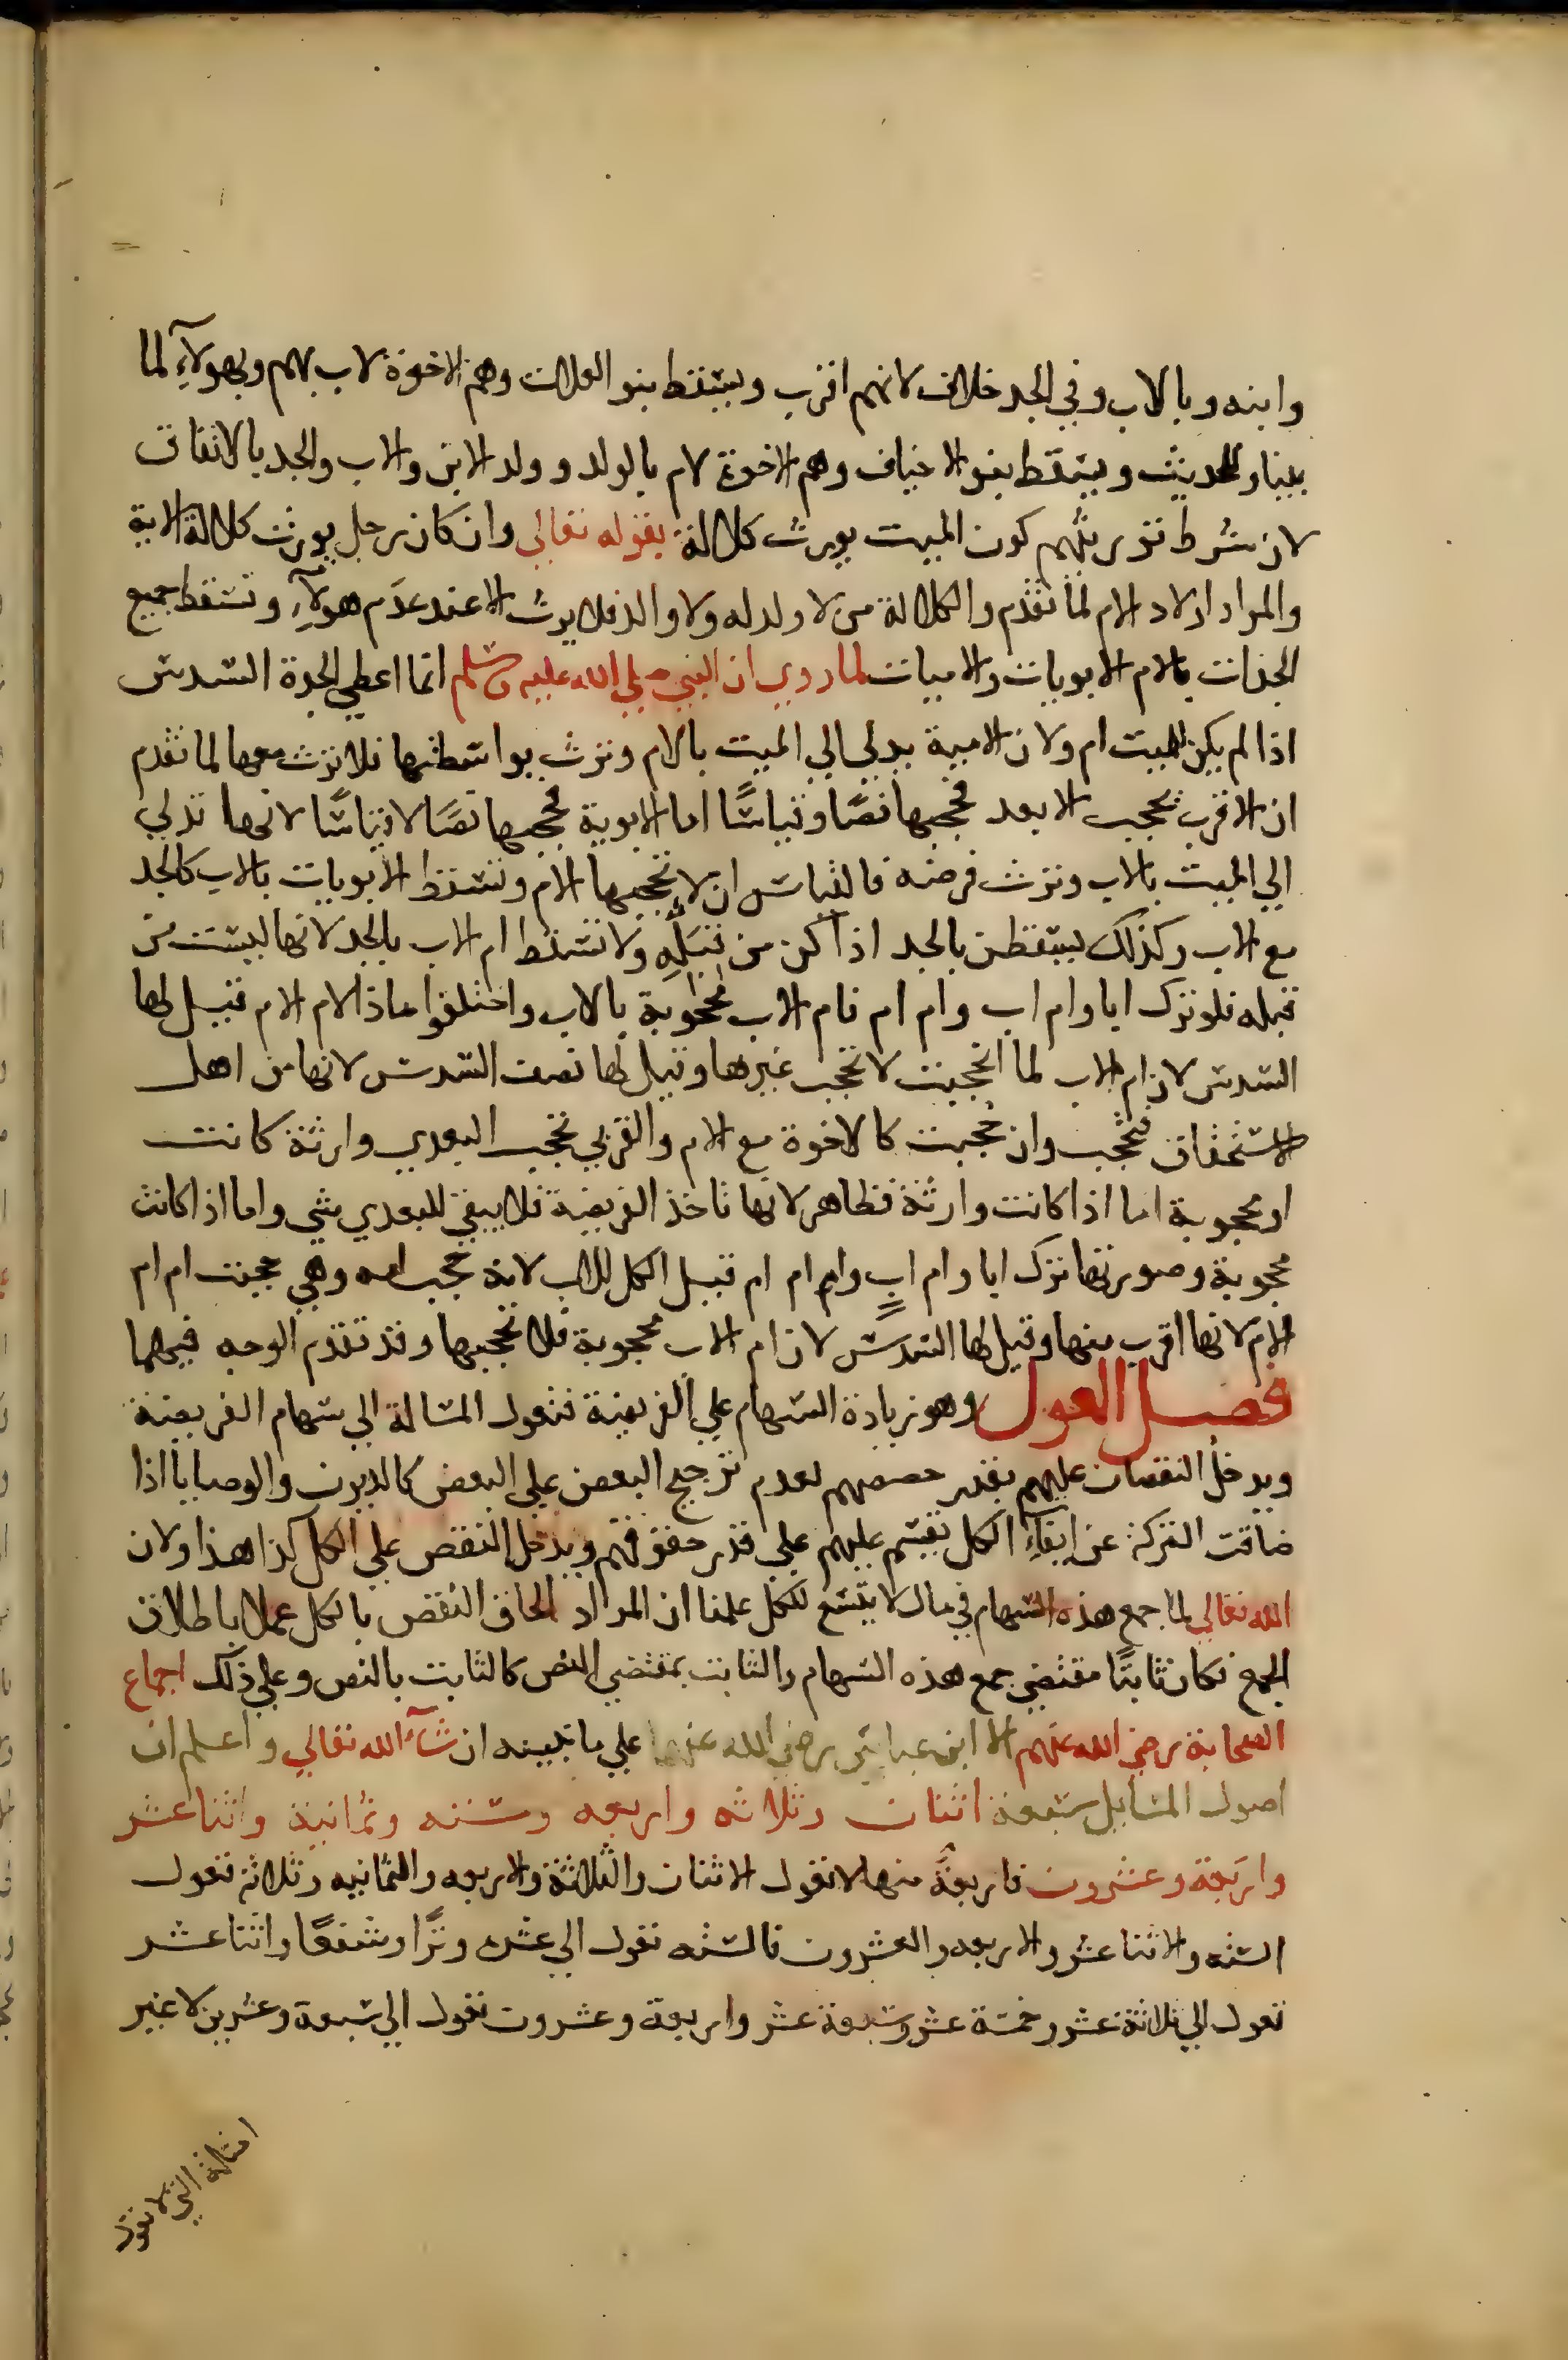 وابنه وبالاب وفي الجد خلاف لانهم اقرب ويسقط بنو العلات وهم الاخوة لاب بهم وبهولآء لما
بينا وللحديث ويسقط بنو الاخياف وهم الاخوة لام بالولد وولد الابن والاب والجد بالاتفاق
لان شرط توريثهم كون الميت يورث كلالة بقوله تعالي وان كان رجل يورث كلالة الاية
والمراد اولاد الام لما تقدم والكلالة من لا ولد له ولا والد فلا يرث الا عند عدم هولآء وتسقط جميع
الجدات بالام الابويات والاميات لما روي ان النبي صلي الله عليه وسلم انما اعطي الجدة السدس
اذا لم يكن للميت ام ولان الامية يدلي الي الميت بالام وترث بواسطتها فلا ترث معها لما تقدم
ان الاقرب يحجب الابعد فحجبها نصًا وقياسًا اما الابوية فحجبها نصًا لا قياسًا لانها تدلي
الي الميت بالاب وترث فرضه فالقياس ان لا تحجبها الام وتسقط الابويات بالاب كالجد
مع الاب وكذلك يسقطن بالجد اذا كن من قبله ولا تسقط ام الاب بالجد لانها ليست من
قبله فلو ترك ابا وام اب وام ام فام الاب محجوبة بالاب واختلفوا ماذا لام الام قيل لها
السدس لان ام الاب لما انحجبت لا تحجب غيرها وقيل لها نصف السدس لانها من اهل
الاستحقاق فتحجب وان حجبت كالاخوة مع الام والقربي تحجب البعدي وارثة كانت
او محجوبة اما اذا كانت وارثة فظاهر لانها تاخذ الفريضة فلا يبقي للبعدي شي واما اذا كانت
محجوبة وصورتها ترك ابا وام اب وام ام ام قيل الكل للاب لانه حجب امه وهي حجبت ام ام
الام لانها اقرب منها وقيل لها السدس لان ام الاب محجوبة فلا تحجبها وقد تقدم الوجه فيهما
فصل العول وهو زيادة السهام علي الفريضة فتعول المسالة الي سهام الفريضة
ويدخل النقصان عليهم بقدر حصصهم لعدم ترجيح البعض علي البعض كالديون والوصايا اذا
ضاقت التركة عن ايفآء الكل يقسم عليهم علي قدر حقوقهم ويدخل النقص علي الكل كذا هذا ولان
الله تعالي لما جمع هذه السهام في مال لا يتسع للكل علمنا ان المراد الحاق النقص بالكل عملا باطلاق
الجمع فكان ثابتًا مقتضي جمع هذه السهام والثابت بمقتضي النص كالثابت بالنص وعلي ذلك اجماع
الصحابة رضي الله عنهم الا ابن عباس رضي الله عنهما علي ما نبينه ان شآء الله تعالي واعلم ان
اصول المسايل سبعة اثنان وثلاثه واربعه وسته وثمانية واثنا عشر
واربعة وعشرون فاربعة منها لا تعول الاثنان والثلاثة والاربعه والثمانيه وثلاثه تعول
السته والاثنا عشر والاربعه والعشرون فالسته تعول الي عشره وترًا وشفعًا واثنا عشر
تعول الي ثلاثة عشر وخمسة عشر وسبعة عشر واربعة وعشرون تعول الي سبعة وعشرين لا غير
امثلة التي لا تعول